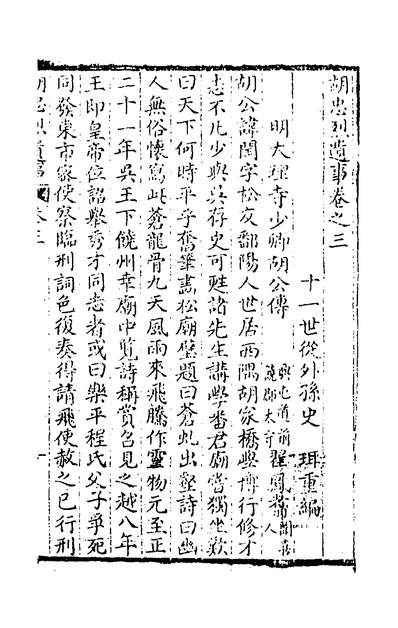 胡忠烈遺事卷之三
十一世從外孫史 珥重編
明大理寺少卿胡公傳 興屯道前饒郡太守翟鳳翥聞喜人
胡公諱閏字松友鄱陽人世居西隅胡家橋學博行修才
志不凡少與吳存史可甦諸先生講學番君廟嘗獨坐歎
曰天下何時平乎奮筆畫松廟壁題曰蒼虬出壑詩曰幽
人無俗懷寫此蒼龍骨九天風雨來飛騰作靈物元至正
二十一年吳王下饒州幸廟中覽詩稱賞召見之越八年
王即皇帝位詔舉秀才同志者或曰樂平程氏父子爭死
同發東市宻使察臨刑詞色復奏得請飛使赦之已行刑
胡忠烈遺事 卷三 一